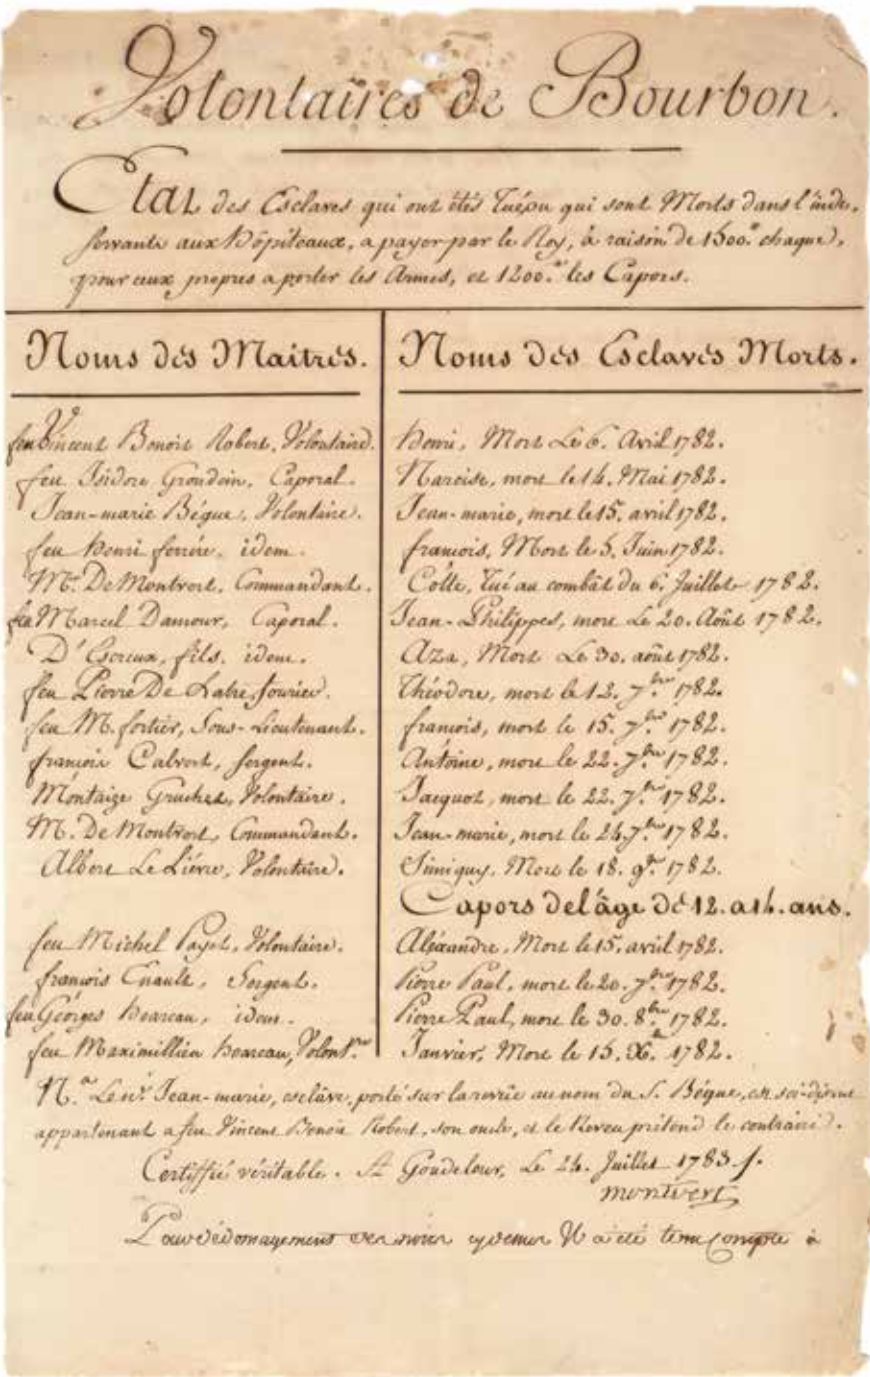 Volontaires de Bourbon.
Etat des Esclaves qui ont étés Tués ou qui sont Morts dans l'inde,
servants aux hôpiteaux, a payer par le Roy, à raison de 1500.# chaque,
pour ceux propres a porter les Armes, et 1200.# les Capors.
Noms des Maitres. Noms des Esclaves Morts.
feu Vincent Benoit Robert, Volontaire. henri, Mort Le 6. Avril 1782.
feu Isidore Grondein, Caporal. Narcise, mort le 14. Mai 1782.
Jean-marie Bégue, Volontaire. Jean-marie, mort le 15. avril 1782.
feu henri ferrére, idem. françois, Mort le 5. Juin 1782.
Mr. De Montvert, Commandant. Colle, Tué au combat du 6. Juillet 1782.
feu Marcel Damour, Caporal. Jean-Philippes, mort Le 20. Août 1782.
fils. idem. Aza, Mort Le 30. août 1782.
feu Pierre De fourier. Théodore, mort le 12. 7bre 1782.
feu M. fortier, Sous-Lieutenant. françois, mort le 15. 7bre 1782.
françois Calvert, sergent. Antoine, mort le 22. 7bre 1782.
Montaize Gruchet, Volontaire. Jacquot, mort le 22. 7bre 1782.
M. De Montvert, Commandant. Jean-marie, mort le 24 7bre 1782.
Albert Le Liévre, Volontaire. Mort le 18. 9bre 1782.
Capors de l'âge de 12. a 14. ans.
feu Michel Payet, Volontaire. Aléxandre, Mort le 15. avril 1782.
françois Enault, Sergent. Pierre Paul, mort le 20. 7bre 1782.
feu Géorges hoareau, idem. Pierre Paul, mort le 30. 8bre 1782.
feu Maximillien hoareau, Volontre. Janvier, Mort le 15. Xbre 1782.
Na. Le nr. Jean-marie, esclave, porté sur la revüe au nom du S. Bégue, est soi-disant
appartenant a feu Vincent Benoit Robert, son oncle, et le Neveu prétend le contraire.
Certiffié véritable. A Goudelour, Le 24. Juillet 1783 /.
montvert
Pour dédomagement des noirs cy dessus Il a été tenu Compte à